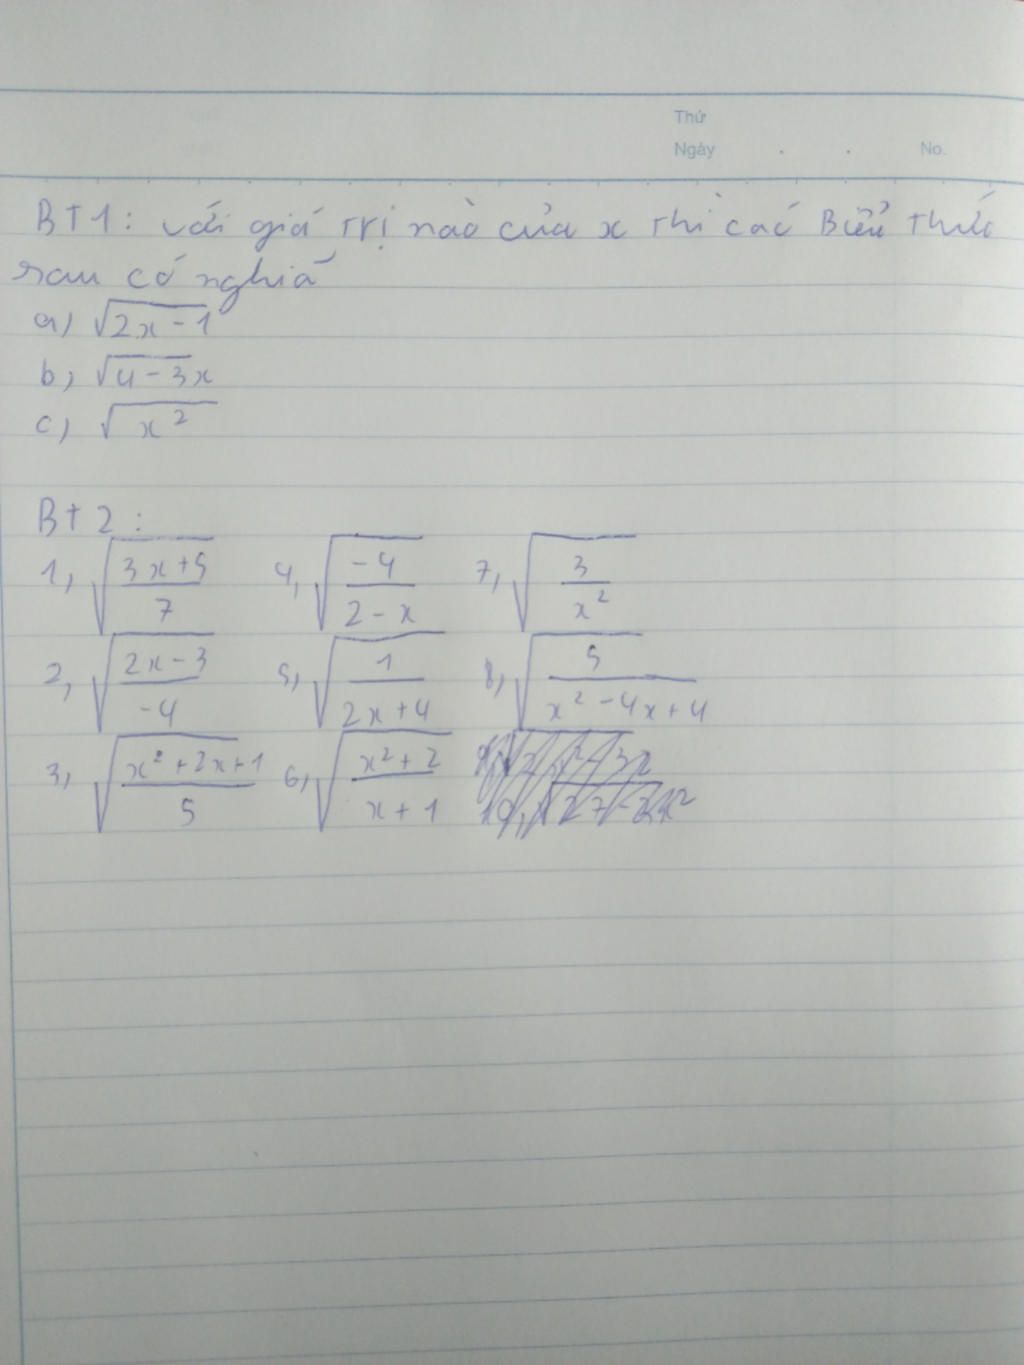 Thứ
Ngày . . No.
BT1: với giá trị nào của x thì các Biểu thức
sau có nghiã
a) √2x-1
b) √4-3x
c) √x²
BT2:
1, √(3x+5)/7 4, √(-4)/(2-x) 7, √3/x²
2, √(2x-3)/(-4) 5, √1/(2x+4) 8, √5/(x²-4x+4)
3, √(x²+2x+1)/5 6, √(x²+2)/(x+1)